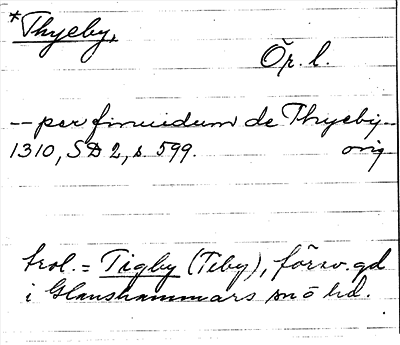 *Thyeby,
Ör. l.
-- per finuidum de Thyeby --
1310, SD 2, s 599. orig
trol. = Tigby (Teby), försv. gd
i Glanshammars sn ö hd.